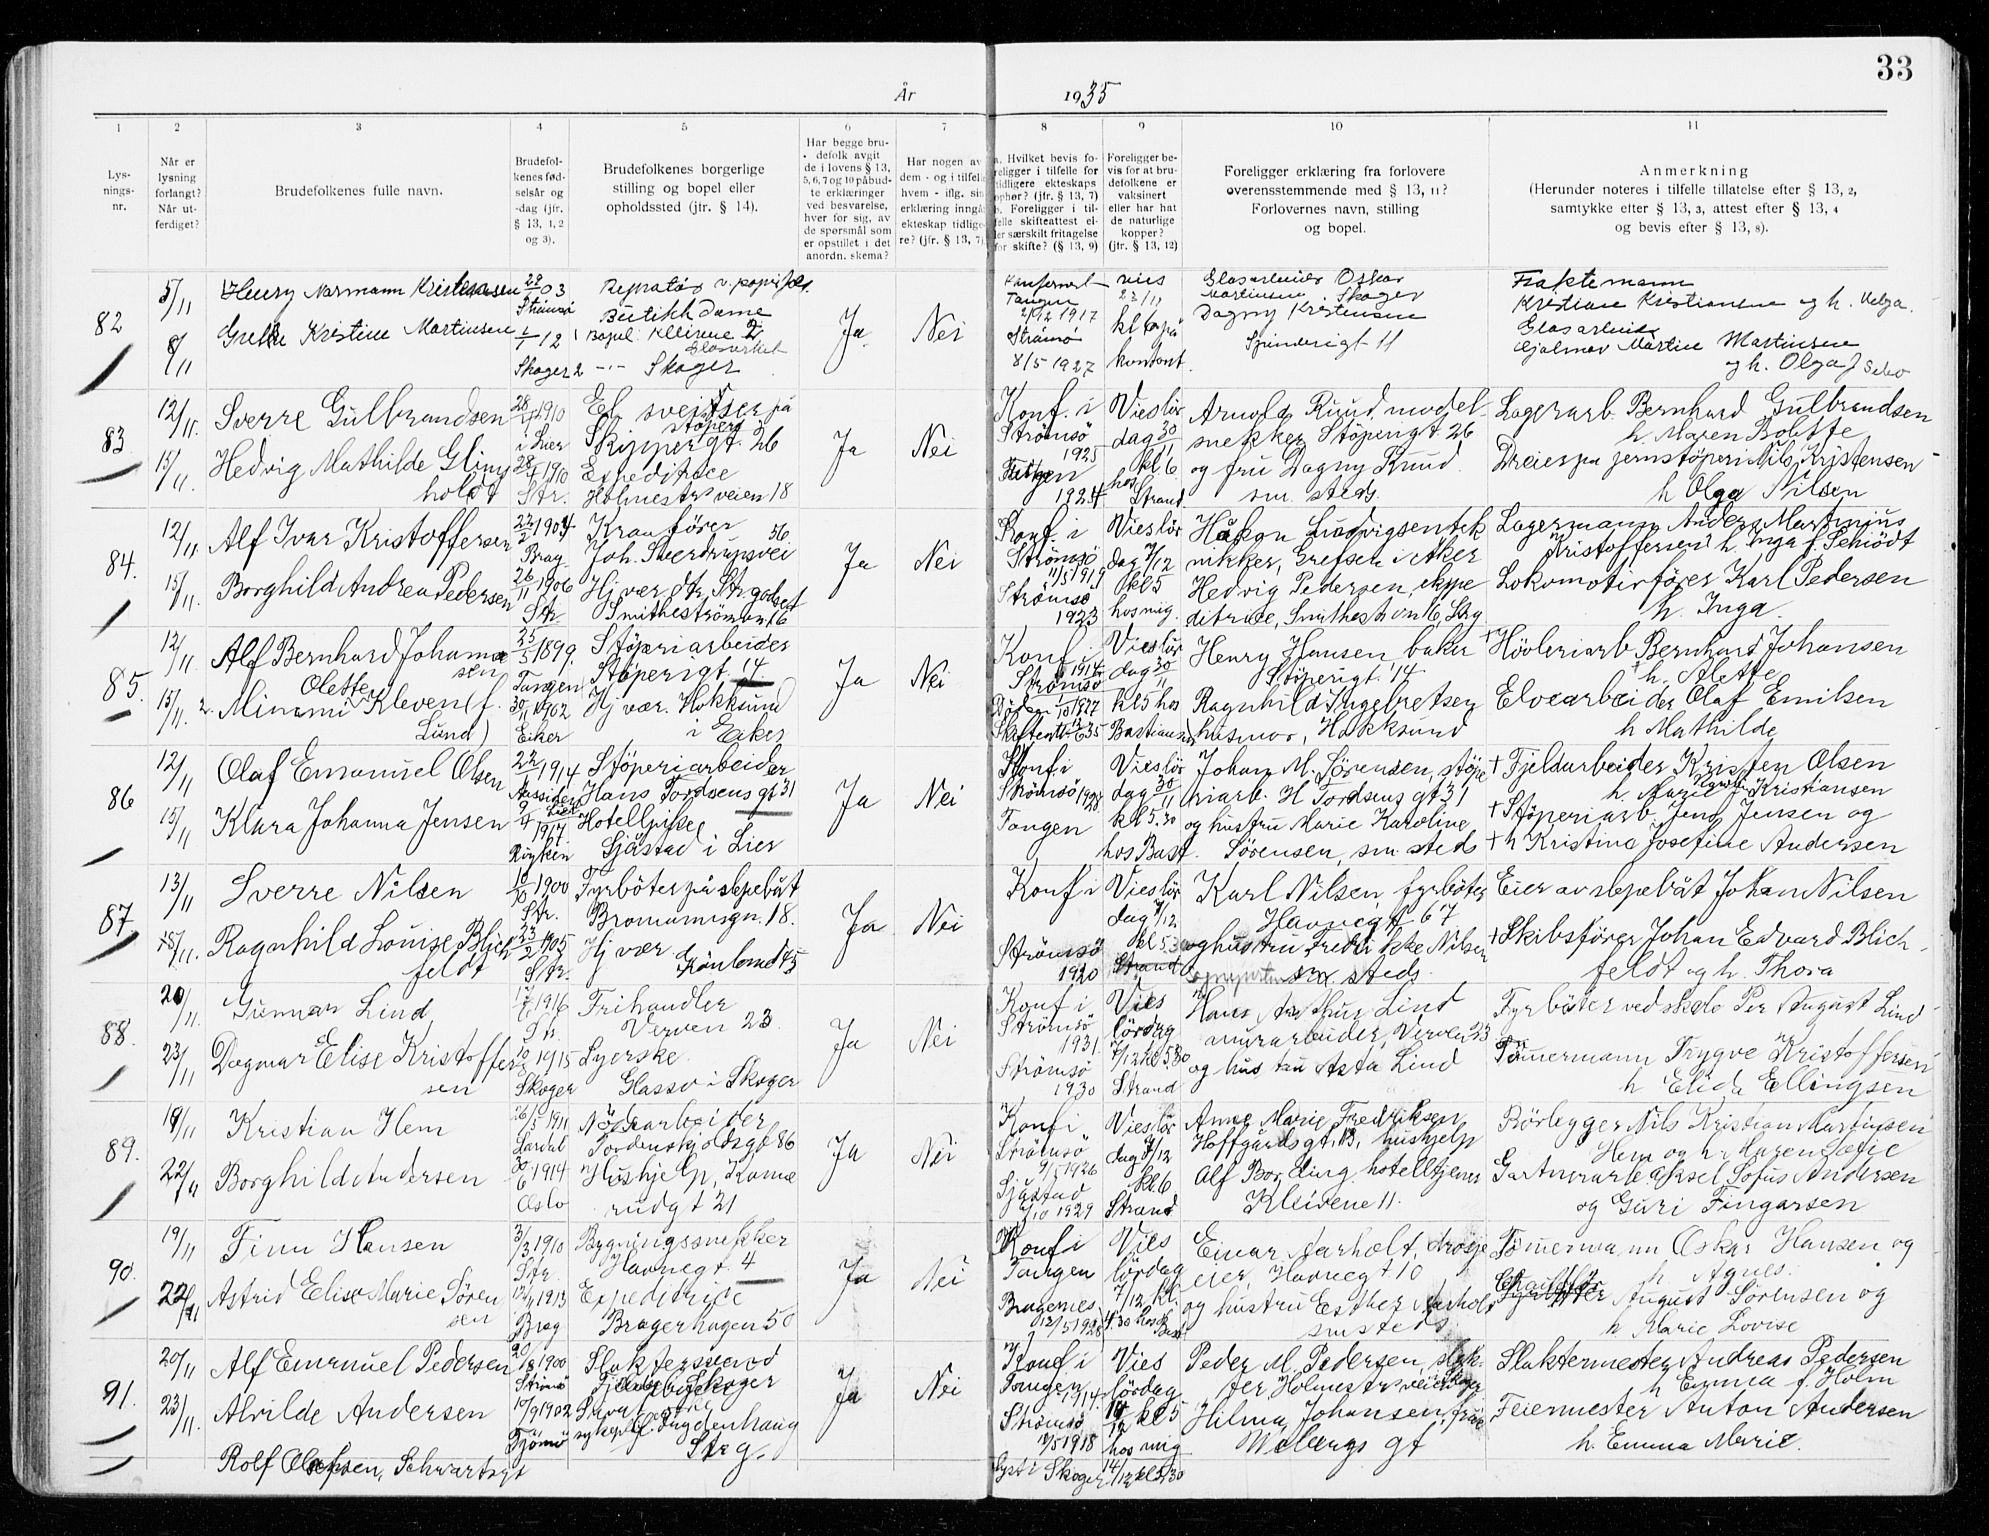 33
År 1935
1 2 3 4 5 6 7 8 9 10 11
Lys-
nings-
nr.
Når er
lysning
forlangt?
Når ut-
ferdiget?
Brudefolkenes fulle navn.
Brudefol-
kenes fød-
selsår og
-dag (jfr.
§ 13, 1, 2
og 3).
Brudefolkenes borgerlige
stilling og bopel eller
opholdssted (jfr. § 14).
Har begge bru-
defolk avgit
de i lovens § 13,
5, 6, 7 og 10 påbud-
te erklæringer
ved besvarelse,
hver for sig, av
de spørsmål som
er opstillet i det
anordn. skema?
Har nogen av
dem - og i tilfelle
hvem - iflg. sin
erklæring inngåt
ekteskap tidlige-
re? (jfr. § 13, 7).
a. Hvilket bevis fo-
religger i tilfelle for
tidligere ekteskaps
ophør? (jfr. § 13, 7)
b. Foreligger i til-
felle skifteattest el-
ler særskilt fritagelse
for skifte? (§ 13, 9)
Foreligger be-
vis for at bru-
defolkene er
vaksinert
eller har hat
de naturlige
kopper?
(jfr. § 13, 12)
Foreligger erklæring fra forlovere
overensstemmende med § 13, 11?
Forlovernes navn, stilling
og bopel.
Anmerkning
(Herunder noteres i tilfelle tillatelse efter § 13, 2,
samtykke efter § 13, 3, attest efter § 13, 4
og bevis efter § 13, 8).
82
5/11
8/11
Henry Normann Kristensen
Grethe Kristine Martinsen
Strømsø
Skoger
Butikkdame
Bopel: Kleivene 2
Skoger
Ja
Nei
Tangen
1917
Strømsø
8/5 1927
vies
kontort
Glasarbeider Oskar
Martinsen, Skoger
Dagny Kristensen
11
Kristian Kristiansen og h. Helga
Glasarbeider
Hjalmar Martin Martinsen
og h. Olga
83
12/11
15/11
Sverre Gulbrandsen
Hedvig Mathilde Gling
holdt
1910
i Lier
28/4 1910
Str.
El. sveiser på
støperi
Skippergt. 26
Expeditrice
Holmestrsveien 18
Ja
Nei
Konf. i
Strömsö
1925
Tangen
1924
Vies lör
dag 30/11
kl 6
hos
Strand
Arnold Ruud, model
snekker Stöperigt. 26
og fru Dagny Ruud
sm. steds.
Lagerarb. Bernhard Gulbrandsen
h. Maren Bolette
Dreier på jernstöperi Nils Kristensen
h Olga Nilsen
84.
12/11
15/11
Alf Ivar Kristoffersen
Borghild Andrea Pedersen
22/2 1904
Brag
26/11 1906
Str
Kranförer
Joh. Sverdrupsvei 56
Hj vær. dtr. Str. godset
Smithestrømvn. 16
Ja
Nei
Konf. i
Strömsö
1919
Strömsö
1923
Vies lör
dag 7/12
kl 5
hos mig.
Håkon Ludvigsen tek
nikker, Grefsen i Aker
Hedvig Pedersen, expe
ditrice, Smithestr.vn 16, Strg
Lagermann Anders Martinius
Kristoffersen h. Inga f. Schiödt
Lokomotivförer Karl Pedersen
h. Inga
85.
12/11
15/11
Alf Bernhard Johanne
sen
Olette
Minami Kleven (f.
Lund)
25/5 1899
Tangen
1902
Eiker
Stöperiarbeider
Stöperigt. 14
Hj vær. Hokksund
i Eiker
Ja
Nei
Konf i
1914
Strömsö
Vies lör
dag 30/11
kl 5 hos
Bastiansen
Henry Hansen baker
Stöperigt. 14
Ragnhild Ingebretsen
husmor, Hokksund
+ Hövleriarb Bernhard Johansen
h. Alette
Elvearbeider Olaf Emilsen
h Mathilde
86
12/11
15/11
Olaf Emanuel Olsen
Klara Johanna Jensen
1914
Aassiden
1917
Röyken
Stöperiarbeider
Hans Tordsens gt 31
Hotellpike
Sjåstad i Lier
Ja
Nei
Konf i
Strömsö 1928
Tangen
Vies lör
dag 30/11
kl 5.30
hos Bast.
Johan M. Sörensen, stöpe
riarb. H Tordsens gt 31
og hustru Marie Karoline
Sörensen, sm steds
+ Fjeldarbeider Kristen Olsen
h. Marie f. Kristiansen
+ Stöperiarb. Jens Jensen og
+ h Kristina Josefine Andersen
87.
13/11
15/11.
Sverre Nilsen
Ragnhild Louise Blich
feldt
10/10 1900
Str.
23/2 1905
Str.
Fyrböter på slepebåt
Bromannsgn. 18.
Hj vær
Ja
Nei
Konf i
Strömsö
1920
Vies lör
dag 7/12
kl 5.30
Strand
Karl Nilsen, fyrböter
Havnegt 67
og hustru Fredrikke Nilsen
sm. steds.
Eier av slepebåt Johan Nilsen
+ Skibsförer Johan Edvard Blich
feldt og h. Thora
88.
20/11
23/11
Gunnar Lind
Dagmar Elise Kristoffer
sen
1916
Str.
1915
Skoger
Frihandler
Verven 23
Syerske
Glassv i Skoger
Ja
Nei
Konf i
Strömsö
1931
Strömsö
1930
Vies
lördag
7/12 kl 5.30
Strand
Hans Arthur Lind
murarbeider, Verven 23
og hustru Asta Lind
Fyrböter ved skole Per August Lind
Tömmermann Trygve Kristoffersen
h Elida Ellingsen
89.
19/11
22/11
Kristian Hem
Borghild Andersen
26/5 1911
Sandal
30/6 1914
Oslo
Tordenskjoldsgt 86
Hushjelp, Kome
rudgt 21
Ja
Nei
Konf i
Strömsö
9/5 1926
Sjåstad
1929
Vies lör
dag 7/12
kl. 6
Strand
Anne Marie Fredriksen
Hoffgårdsgt. 13, hushjelp
Alf Bording, hotelltjener
Kleivene 11.
Rörlegger Nils Kristian Martinsen
Hem og h. Maren Sofie
Gartnerarb. Aksel Sofus Andersen
og Guri Fingarsen
90.
19/11
22/11
Finn Hansen
Astrid Elise Marie Sören
sen
3/3 1910
Str
1913
Brag
Bygningssnekker
Havnegt. 4
Expeditrice
Bragerhagen 50
Ja
Nei
Konf i
Tangen
Bragernes
13/5 1928
Vies
lördag
7/12 kl
4.30 hos
Bast
Einar Aarholt, drosje
eier, Havnegt 10
og hustru Esther Aarholt
sm steds
Tømmermann Oskar Hansen og
h. Agnes.
August Sörensen og
h Marie Lovise
91.
20/11
23/11
Alf Emanuel Pedersen
Alvilde Andersen
1900
Strømsø
10/9 1902
Tjömö
Slaktersvend
Skoger
Strg.
Ja
Nei
Konf i
Tangen
1914
Strömsö
1918
Vies
lördag
kl 5
hos mig
Peder M. Pedersen, slak-
ter, Holmestrsveien
Hilma Johansen, frue
Wibergs gt
Slaktermester Andreas Pedersen
h Emma f. Holm
Feiermester Anton Andersen
h. Emma Marie.
Rolf Olafsen, Schwartzgt
Lyst i Skoger 14/12 kl 5.30